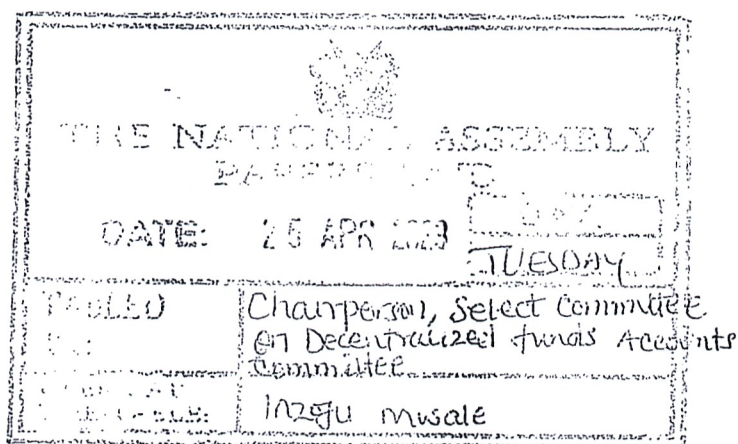 THE NATIONAL ASSEMBLY
PAPERS LAID
DATE: 25 APR 2023
TUESDAY
TABLED Chairperson, Select Committee
BY: on Decentralized funds Accounts
Committee
Inzofu Mwale